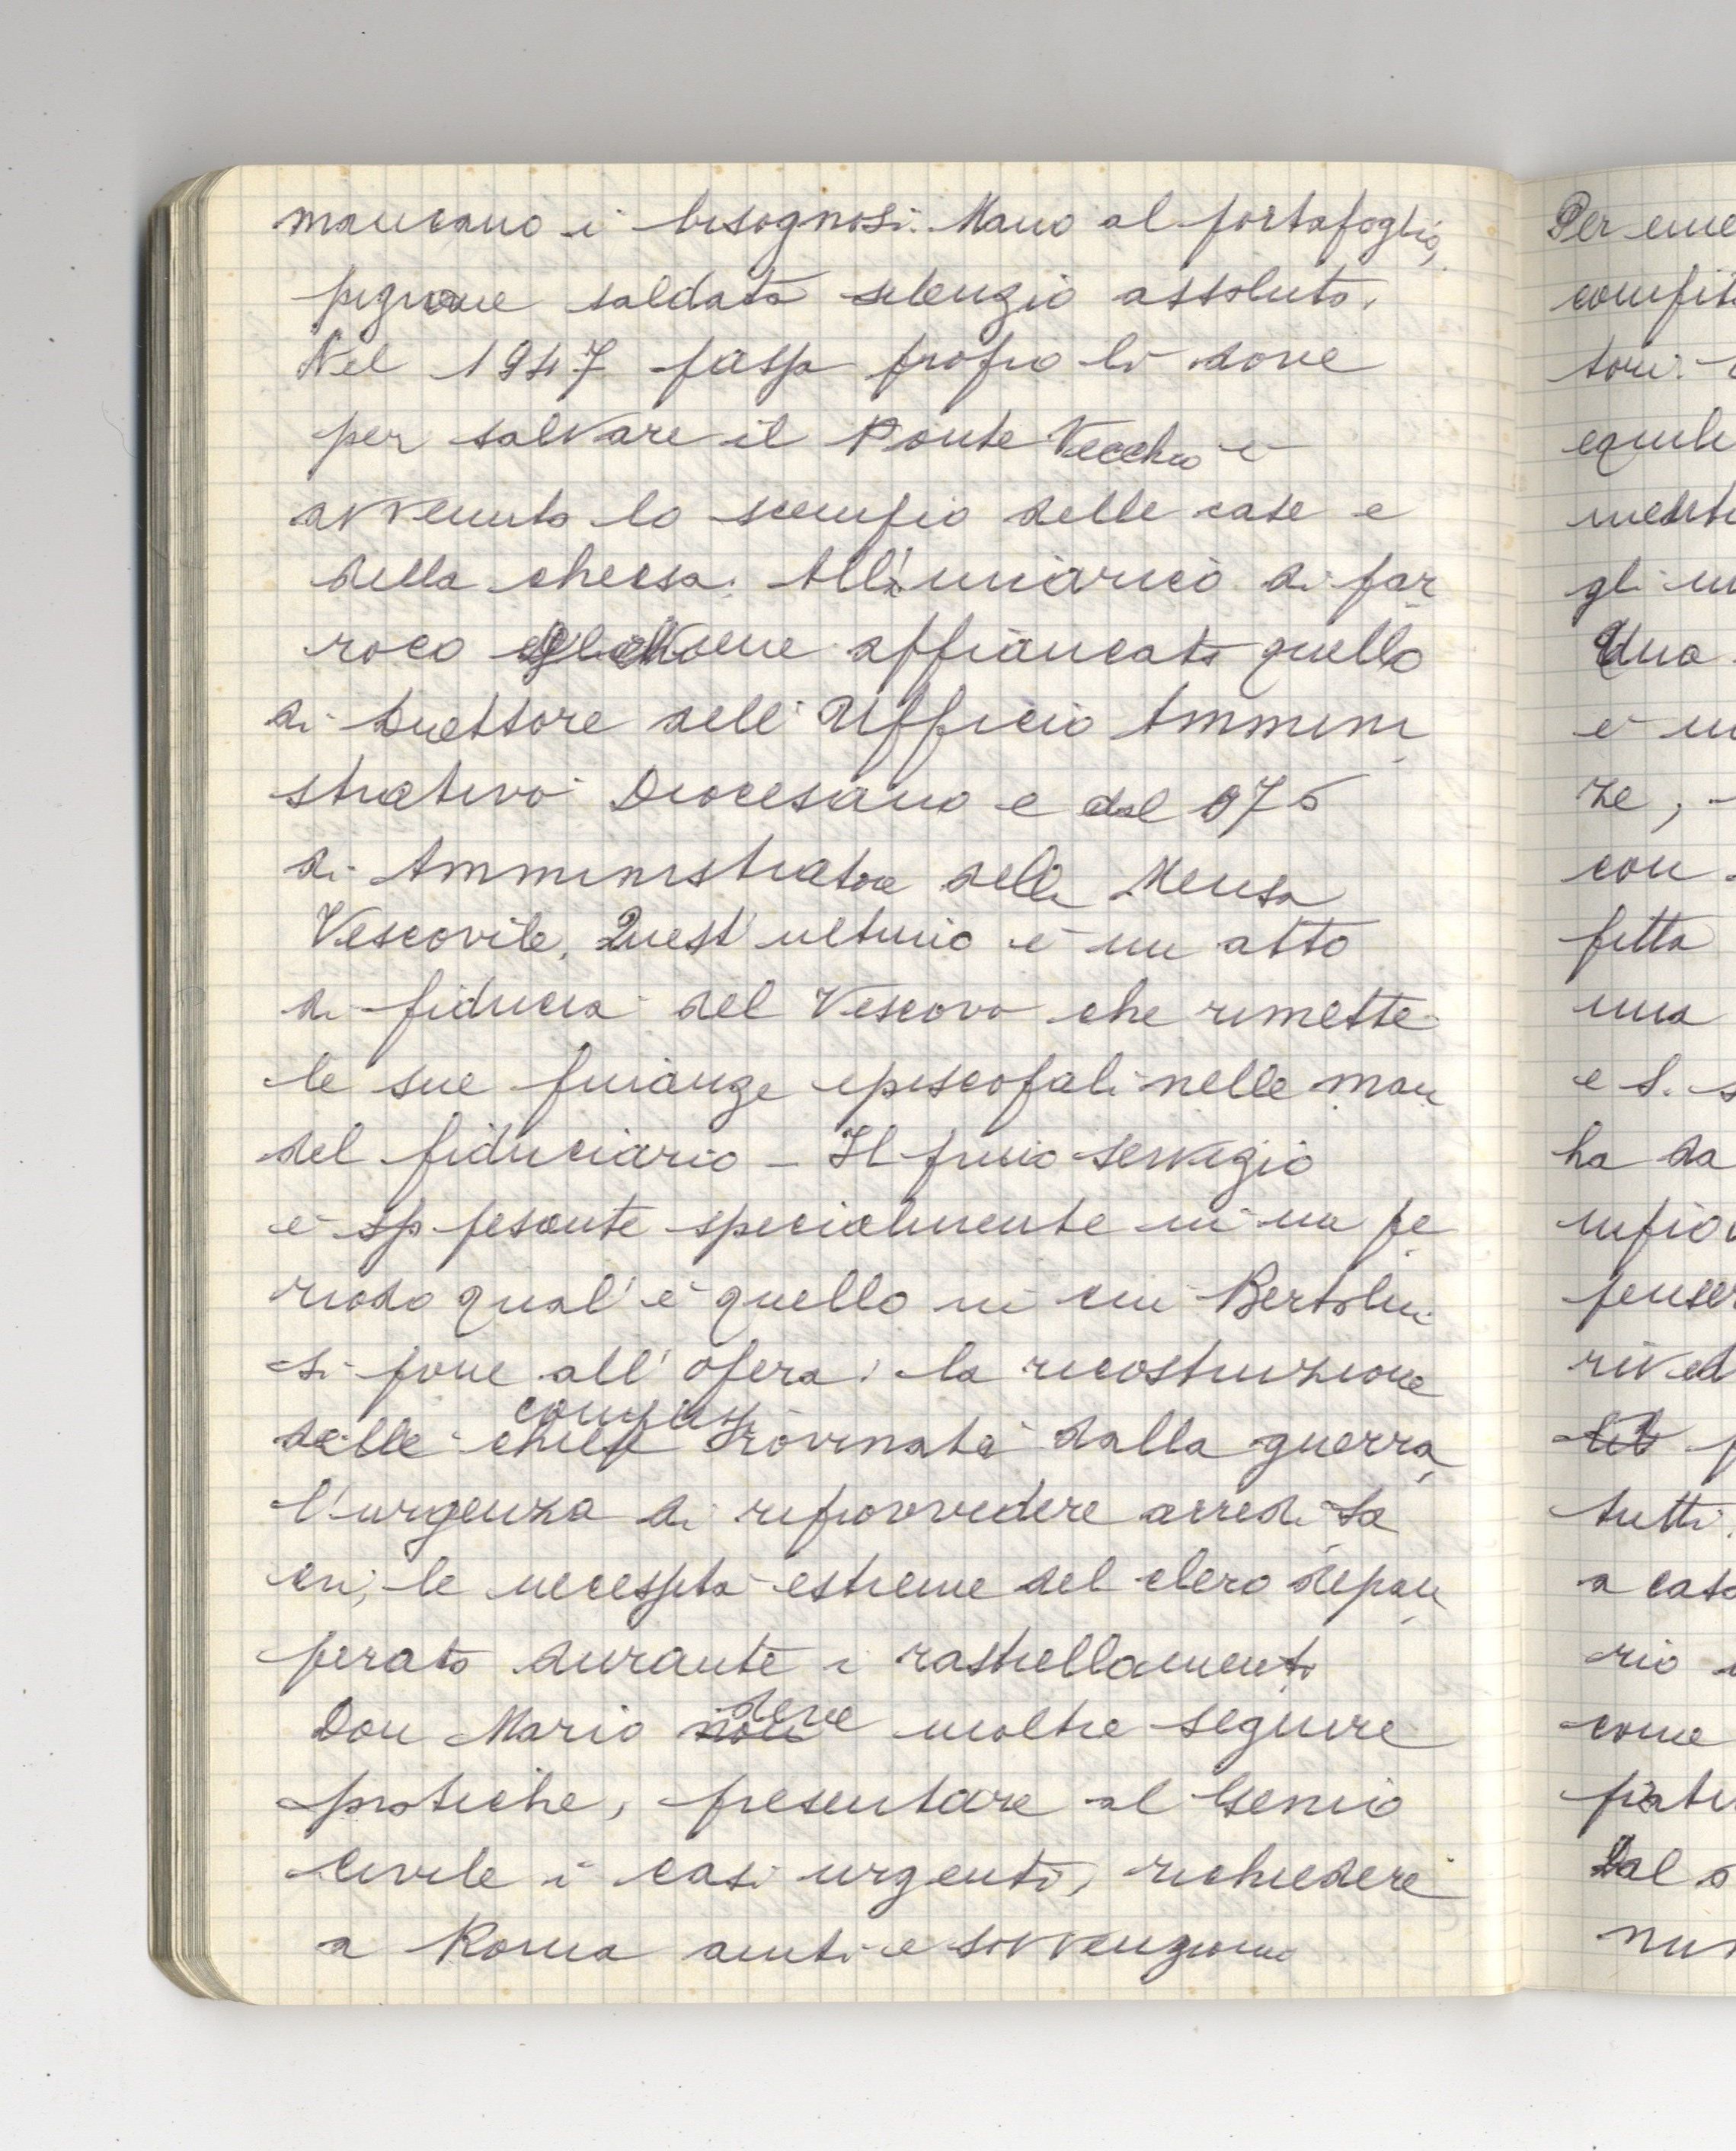 mancano i bisognosi. Mano al portafoglio,
pigione saldata silenzio assoluto.
Nel 1947 passa proprio lì dove
per salvare il Ponte Vecchio è
avvenuto lo scempio delle case e
della chiesa. All'incarico di par
roco viene affiancato quello
di Direttore dell'Ufficio Ammini
strativo Diocesano e dal
di Amministratore della Mensa
Vescovile. Quest'ultimo è un atto
di fiducia del Vescovo che rimette
le sue finanze episcopali nelle mani
del fiduciario – Il primo servizio
è pesante specialmente in un pe
riodo qual'è quello in cui Bertolini
si pone all'opera: la ricostruzione
delle chiese rovinate dalla guerra,
l'urgenza di riprovvedere arredi sa
cri, le necessità estreme del clero depau
perato durante i rastrellamenti
Don Mario non deve inoltre seguire
pratiche, presentare al Genio
Civile i casi urgenti, richiedere
a Roma aiuti e sovvenzioni
Per eme
compit
tori.
equili
ment
gli in
Una
è un
re,
con
fitta
una
e S. s
ha da
pense
rived
tutti.
a casa
rio
come
Dal
num